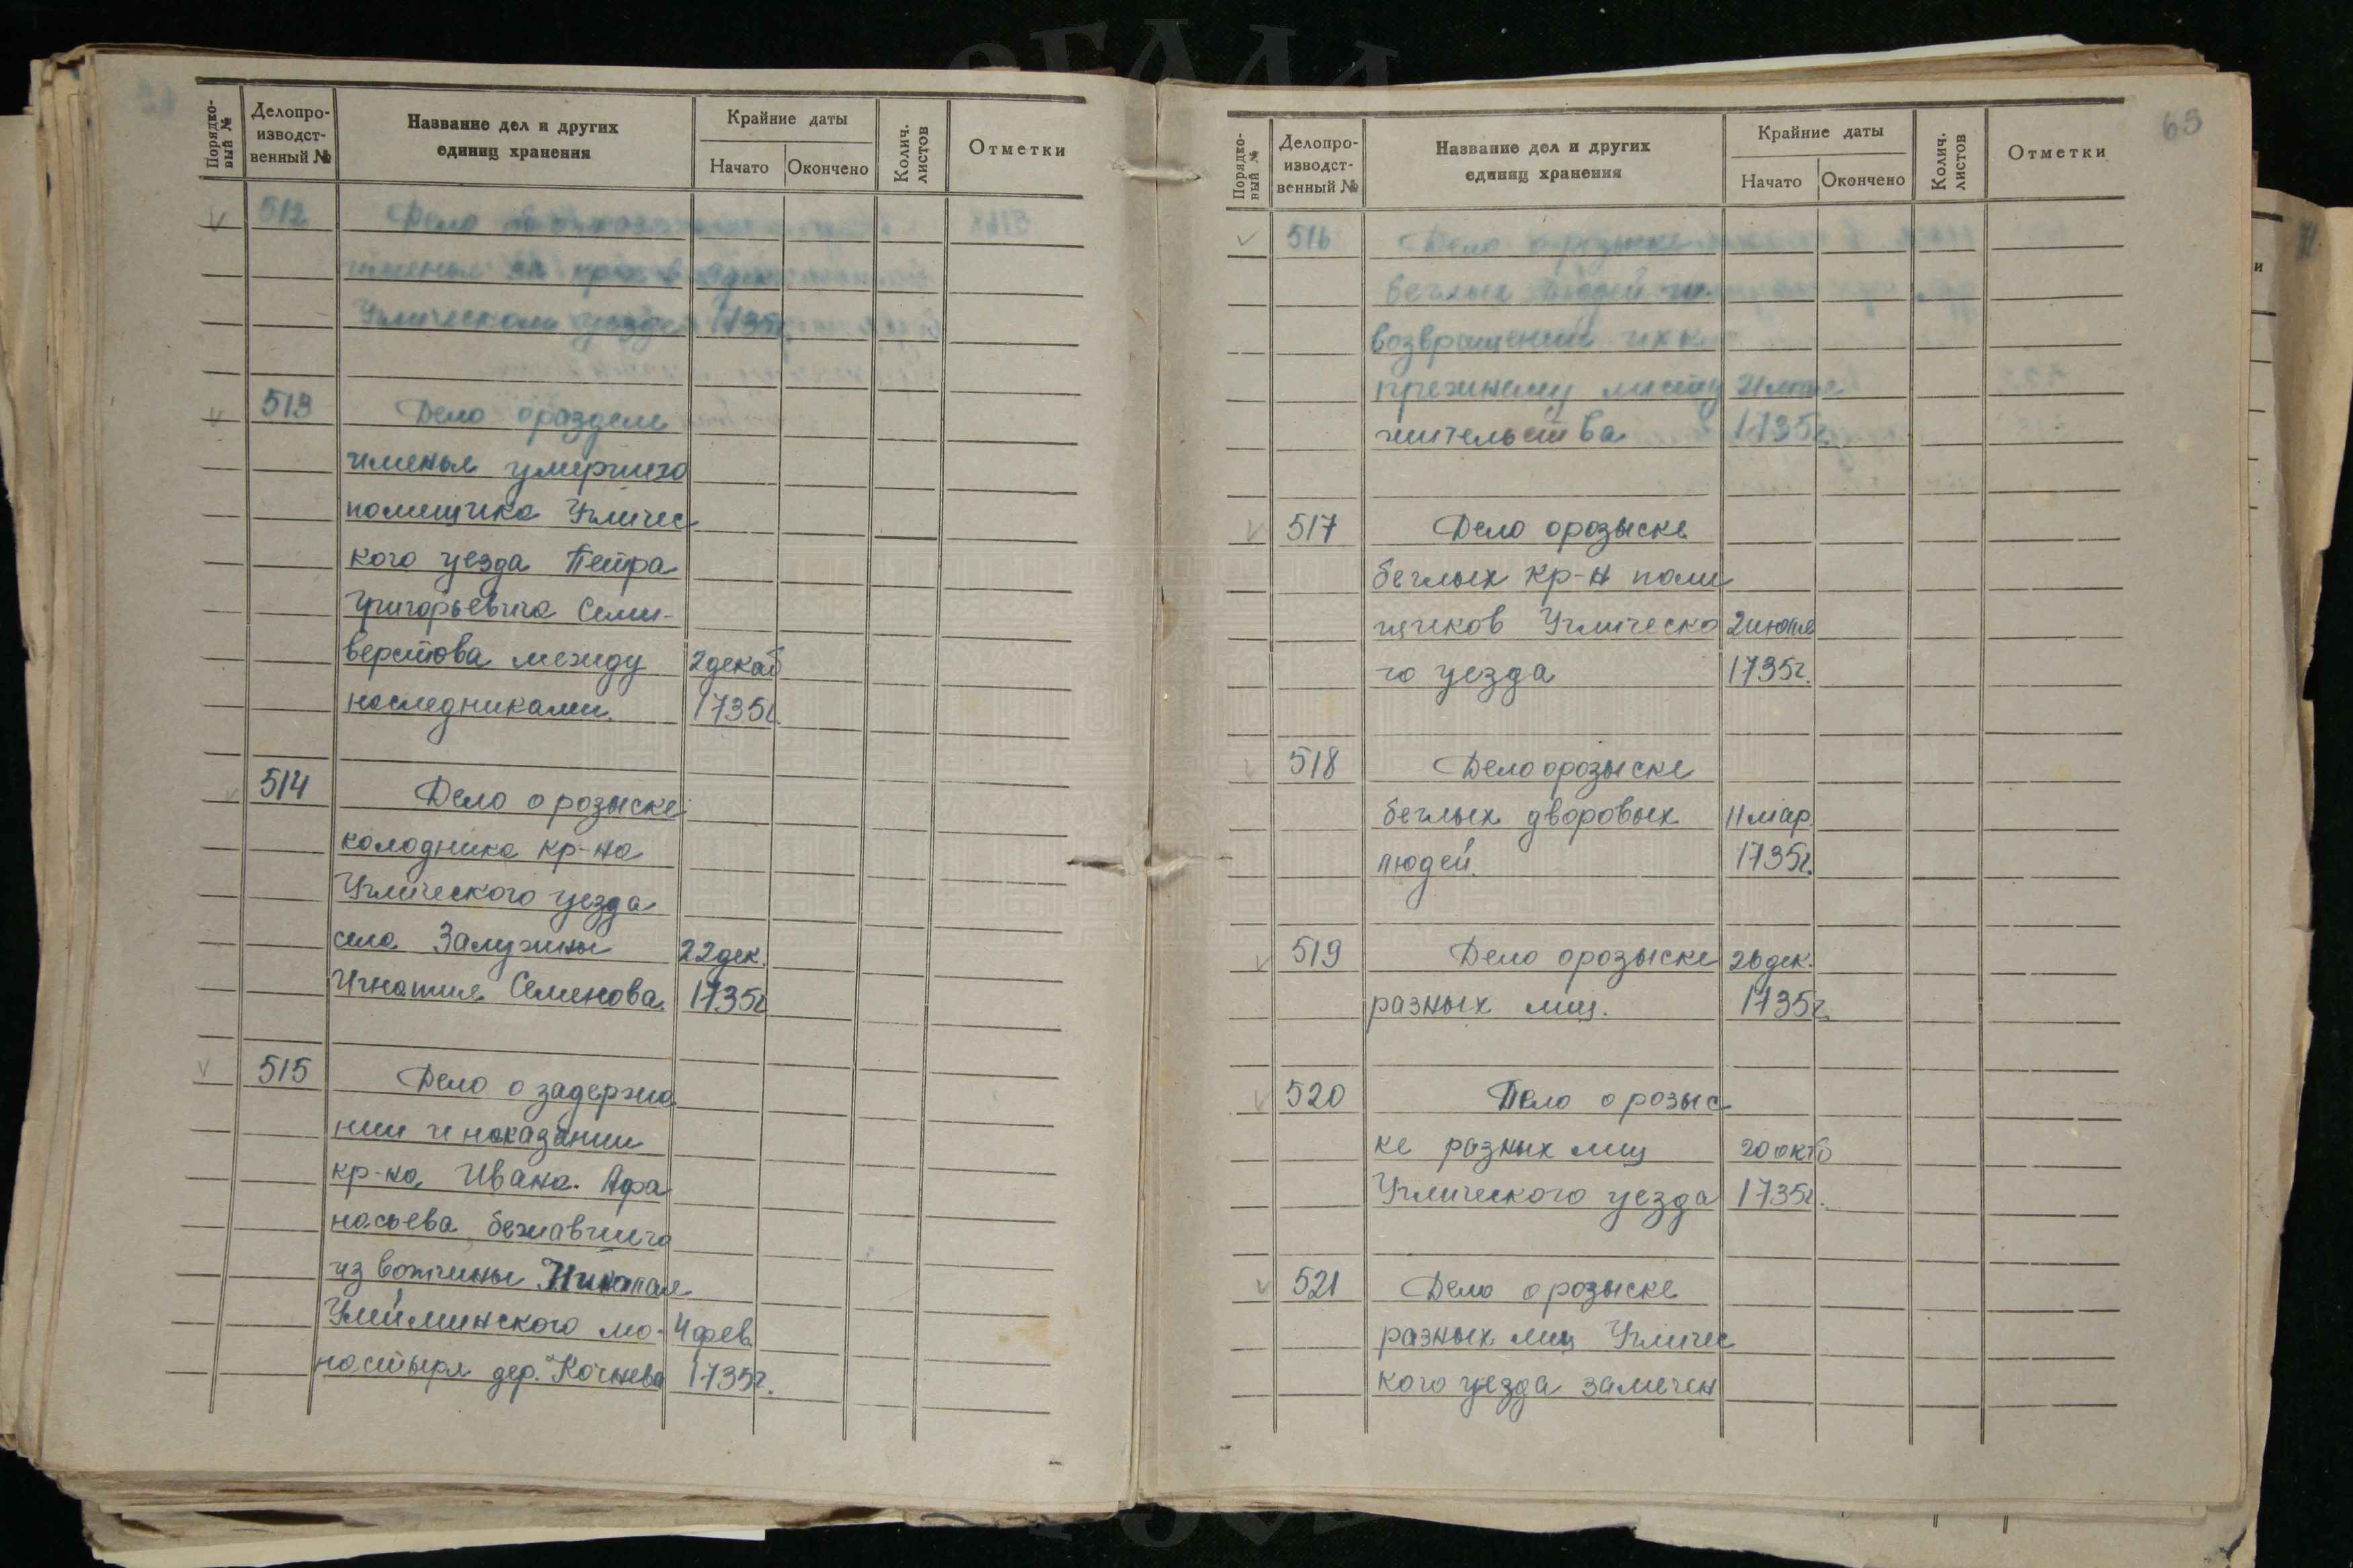 Порядко-
вый №
Делопро-
изводст-
венный №
Название дел и других
единиц хранения
Крайние даты
Начато
Окончено
Колич.
листов
Отметки
512 Дело
именья
Угличском уезде 1735г.
513 Дело о разделе
именья умершего
помещика Угличес
кого уезда Петра
Григорьевича Сели-
верстова между 2 декаб
наследниками. 1735г.
514 Дело о розыске
колодника кр-на
Углического уезда
села Залужины 22 дек.
Игнатия Семенова. 1735г
515 Дело о задержа
нии и наказании
кр-на, Ивана Афа
насьева, бежавшего
из вотчины Николае
Улейминского мо- 4 фев
настыря дер. Кочнева 1735г.
65
Порядко-
вый №
Делопро-
изводст-
венный №
Название дел и других
единиц хранения
Крайние даты
Начато
Окончено
Колич.
листов
Отметки
516 Дело о розыске
беглых людей и
возвращении их к
прежнему месту 21
жительства 1735г.
517 Дело о розыске
беглых кр-н поме
щиков Углическо 2 июля
го уезда 1735г.
518 Дело о розыске
беглых дворовых 11 мар.
людей. 1735г.
519 Дело о розыске 26 дек.
разных лиц. 1735г.
520 Дело о розыс
ке разных лиц 20 октб
Углического уезда 1735г.
521 Дело о розыске
разных лиц Угличес
кого уезда замечен